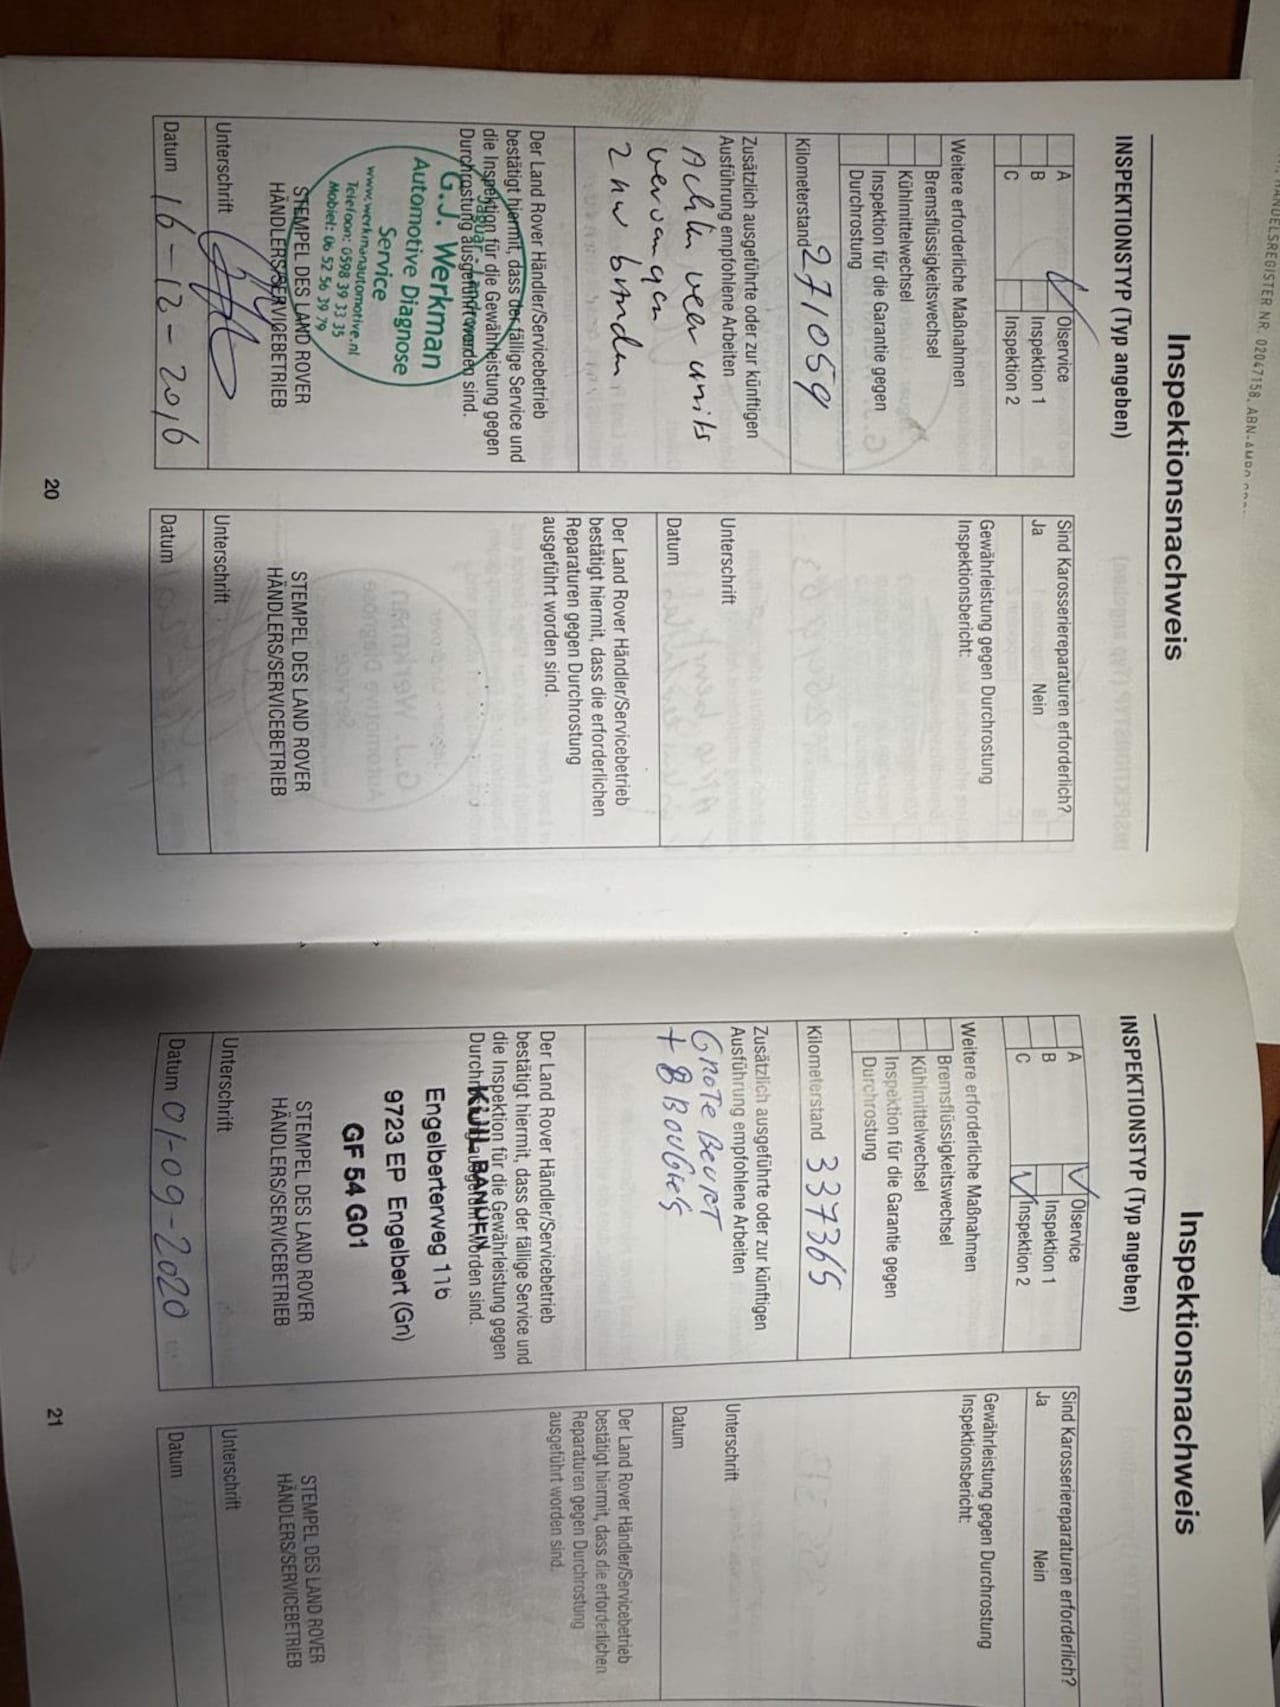 HANDELSREGISTER NR. 02047158. ABN-AMRO
Inspektionsnachweis
INSPEKTIONSTYP (Typ angeben)
A Ölservice
B Inspektion 1
C Inspektion 2
Weitere erforderliche Maßnahmen
Bremsflüssigkeitswechsel
Kühlmittelwechsel
Inspektion für die Garantie gegen
Durchrostung
Kilometerstand 271059
Zusätzlich ausgeführte oder zur künftigen
Ausführung empfohlene Arbeiten
Achter veer units
vervangen
2 nw banden
Der Land Rover Händler/Servicebetrieb
bestätigt hiermit, dass der fällige Service und
die Inspektion für die Gewährleistung gegen
Durchrostung ausgeführt worden sind.
Jaguar - Landrover
G.J. Werkman
Automotive Diagnose
Service
www.werkmanautomotive.nl
Telefoon: 0598 39 33 35
Mobiel: 06 52 56 39 79
STEMPEL DES LAND ROVER
HÄNDLERS/SERVICEBETRIEB
Unterschrift
Datum 16-12-2016
Sind Karosseriereparaturen erforderlich?
Ja Nein
Gewährleistung gegen Durchrostung
Inspektionsbericht:
Unterschrift
Datum
Der Land Rover Händler/Servicebetrieb
bestätigt hiermit, dass die erforderlichen
Reparaturen gegen Durchrostung
ausgeführt worden sind.
STEMPEL DES LAND ROVER
HÄNDLERS/SERVICEBETRIEB
Unterschrift
Datum
20
Inspektionsnachweis
INSPEKTIONSTYP (Typ angeben)
A Ölservice
B Inspektion 1
C Inspektion 2
Weitere erforderliche Maßnahmen
Bremsflüssigkeitswechsel
Kühlmittelwechsel
Inspektion für die Garantie gegen
Durchrostung
Kilometerstand 337365
Zusätzlich ausgeführte oder zur künftigen
Ausführung empfohlene Arbeiten
GROTE BEURT
+ 8 BOUGIES
Der Land Rover Händler/Servicebetrieb
bestätigt hiermit, dass der fällige Service und
die Inspektion für die Gewährleistung gegen
Durchrostung ausgeführt worden sind.
KUIL BANDEN
Engelberterweg 11b
9723 EP Engelbert (Gn)
GF 54 G01
STEMPEL DES LAND ROVER
HÄNDLERS/SERVICEBETRIEB
Unterschrift
Datum 01-09-2020
Sind Karosseriereparaturen erforderlich?
Ja Nein
Gewährleistung gegen Durchrostung
Inspektionsbericht:
Unterschrift
Datum
Der Land Rover Händler/Servicebetrieb
bestätigt hiermit, dass die erforderlichen
Reparaturen gegen Durchrostung
ausgeführt worden sind.
STEMPEL DES LAND ROVER
HÄNDLERS/SERVICEBETRIEB
Unterschrift
Datum
21